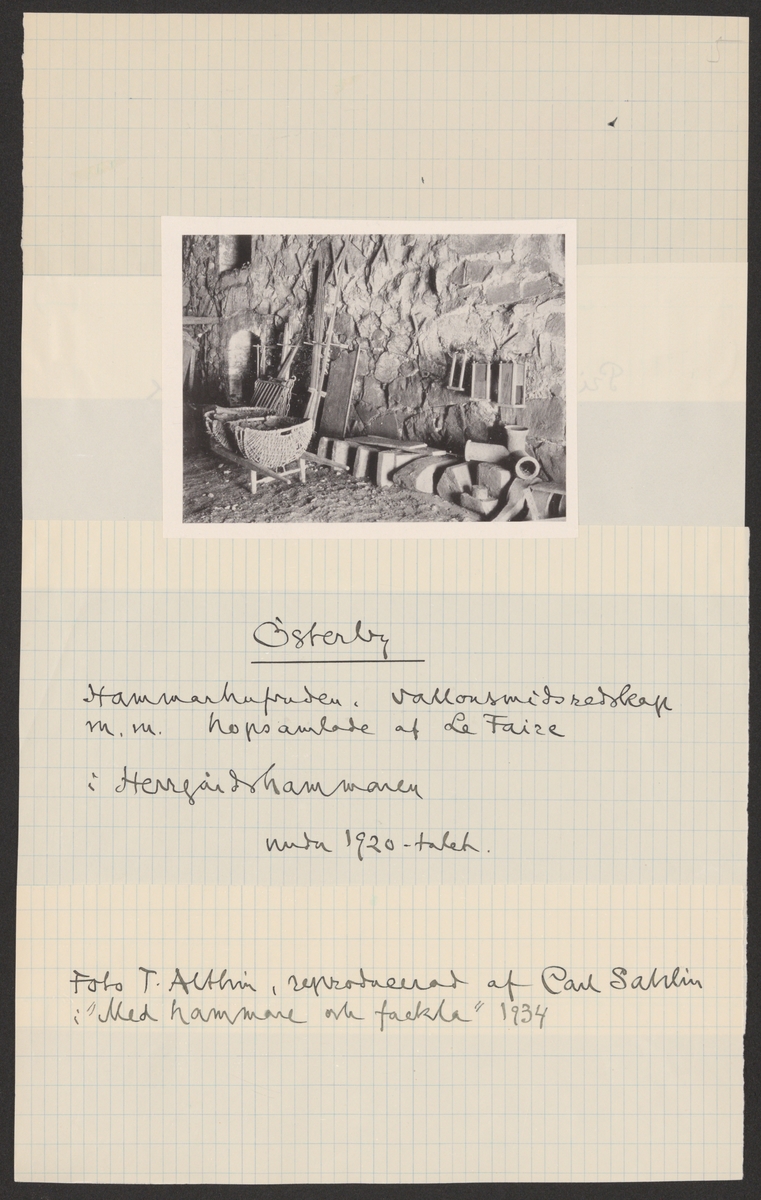 Österby
Hammarhufvuden. Vallonsmidsredskap
m. m. hopsamlade af Le Faire
i Herrgårdshammaren
under 1920-talet.
Foto T. Althin, reproducerad af Carl Sahlin
i "Med hammare och fackla" 1934